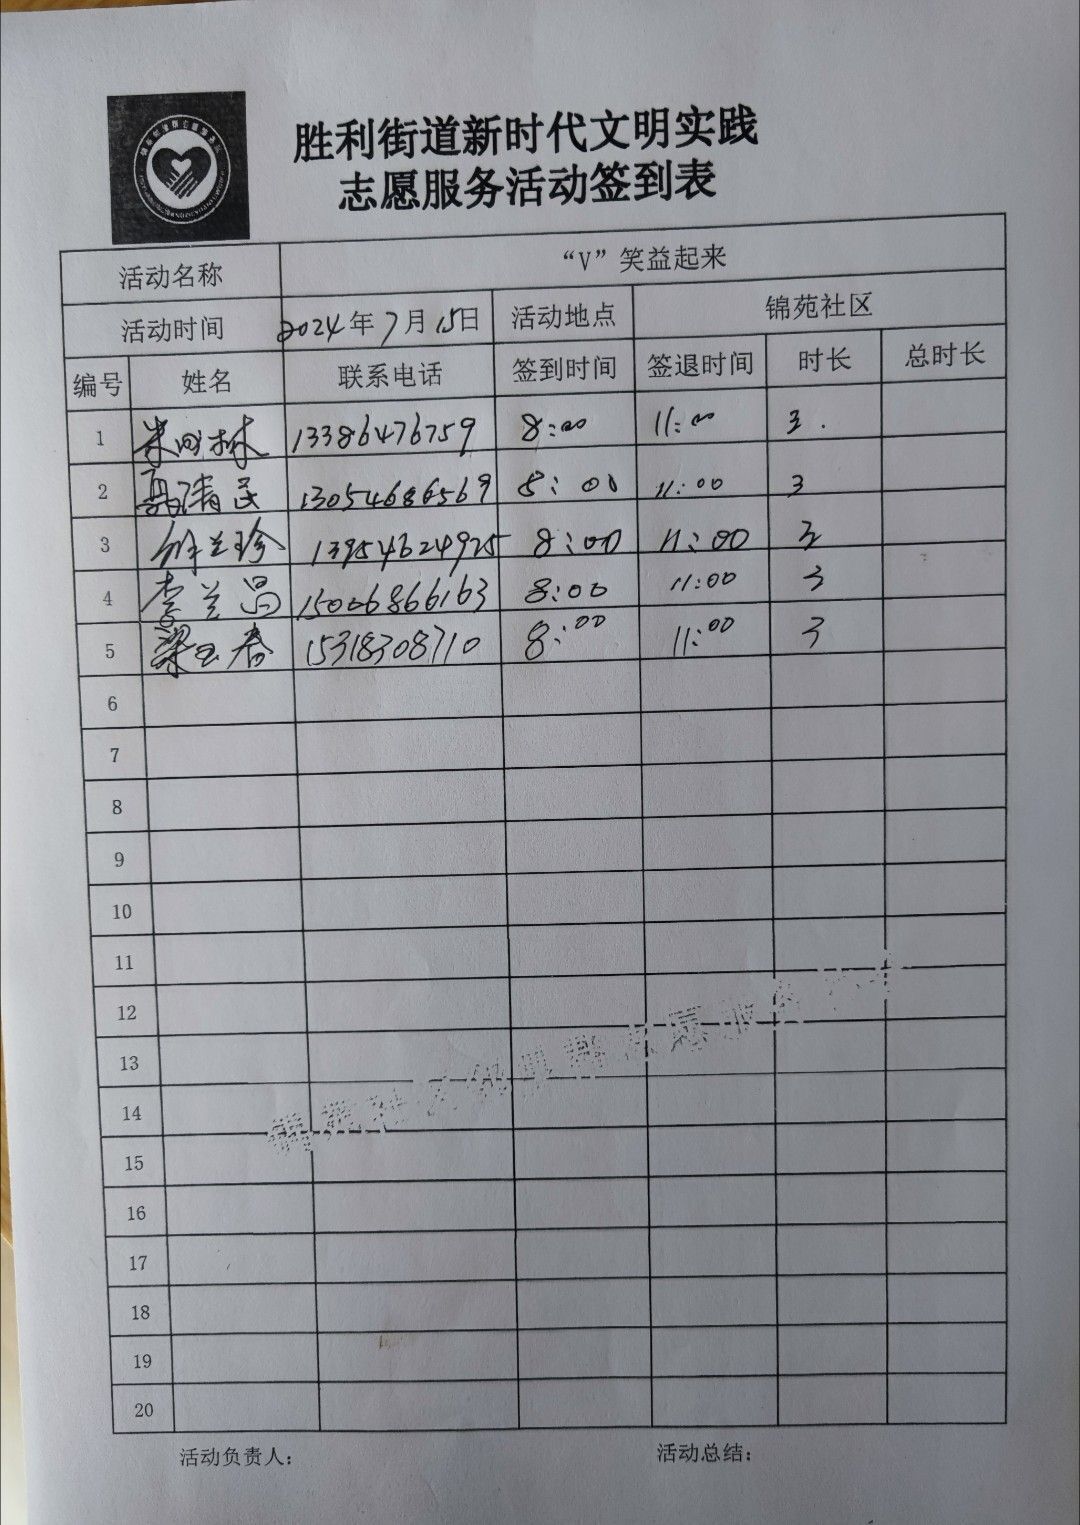 胜利街道新时代文明实践
志愿服务活动签到表
活动名称 “V”笑益起来
活动时间 2024年7月15日 活动地点 锦苑社区
编号 姓名 联系电话 签到时间 签退时间 时长 总时长
1 13386476759 8:00 11:00 3.
2 清民 13054686569 8:00 11:00 3
3 徐兰珍 13954624925 8:00 11:00 3
4 李兰昌 15006866163 8:00 11:00 3
5 梁玉春 15318308710 8:00 11:00 3
6
7
8
9
10
11
12
13
14
15
16
17
18
19
20
活动负责人: 活动总结: